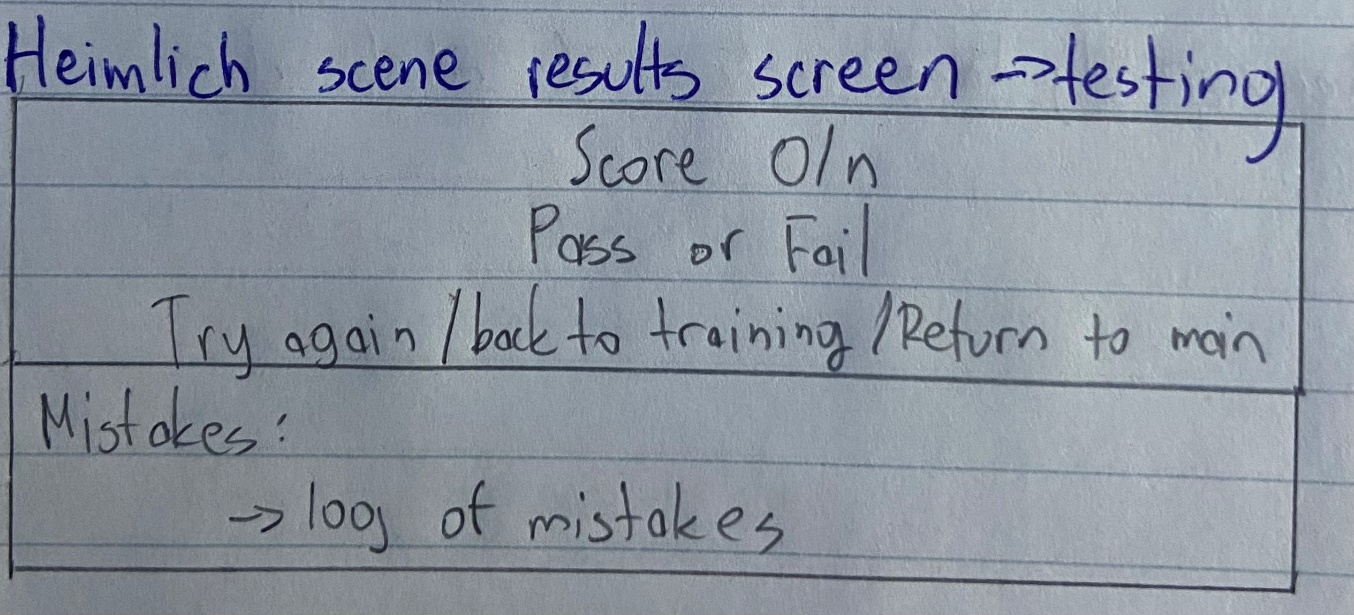 Heimlich scene results screen → testing
Score 0/n
Pass or Fail
Try again / back to training / Return to main
Mistakes:
→ log of mistakes